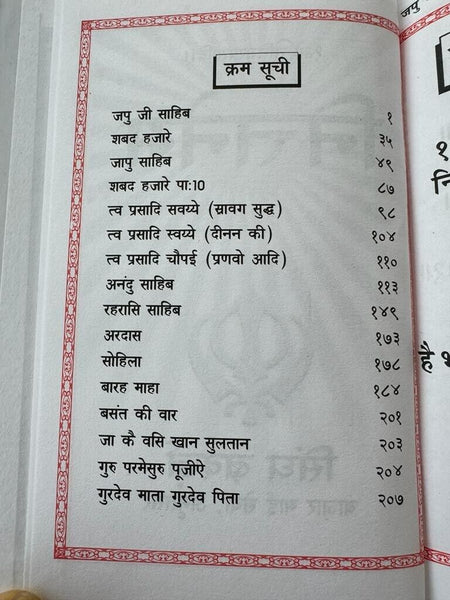 क्रम सूची
जपु जी साहिब १
शबद हजारे ३५
जापु साहिब ४९
शबद हजारे पा:10 ८७
त्व प्रसादि सवय्ये (स्रावग सुद्ध) ९८
त्व प्रसादि स्वय्ये (दीनन की) १०४
त्व प्रसादि चौपई (प्रणवो आदि) ११०
अनंदु साहिब ११३
रहरासि साहिब १४९
अरदास १७३
सोहिला १७८
बारह माहा १८४
बसंत की वार २०१
जा कै वसि खान सुलतान २०३
गुरु परमेसुरु पूजीऐ २०४
गुरदेव माता गुरदेव पिता २०७
जपु
१
है